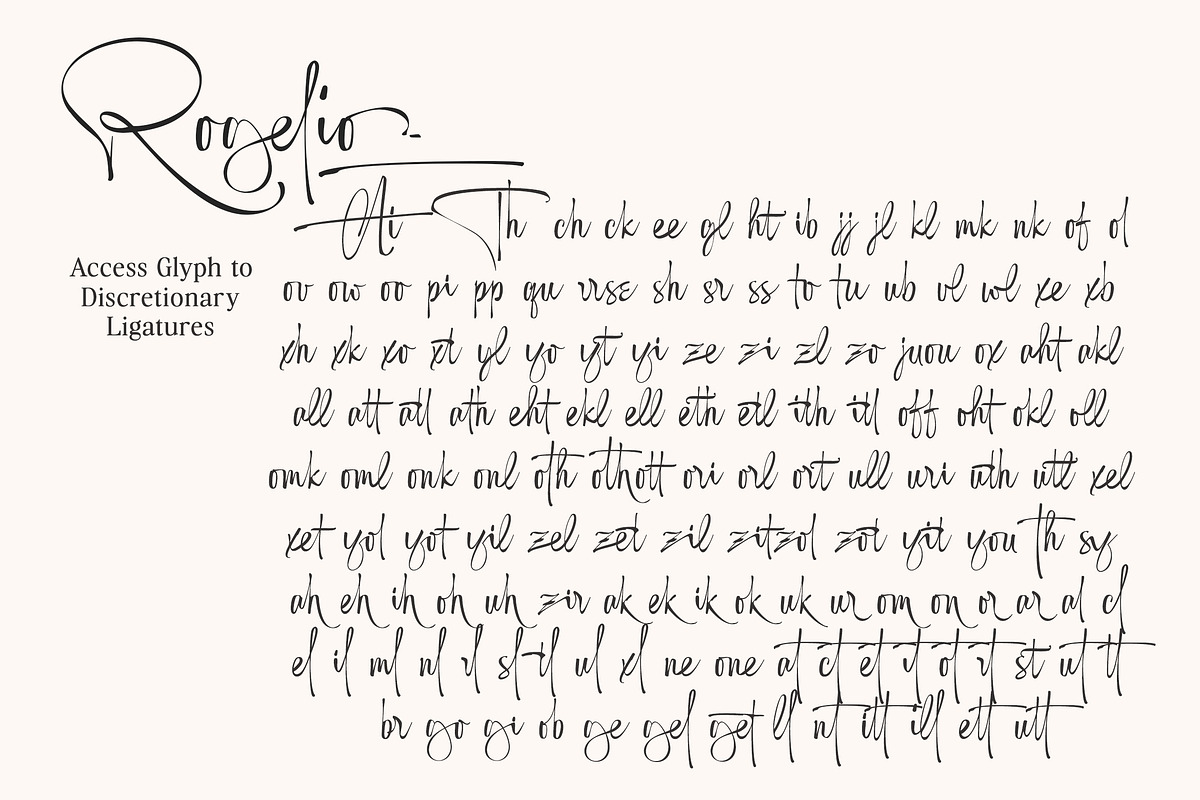 Rogelio
Access Glyph to
Discretionary
Ligatures
Ai Th ch ck ee gl ht ib jj jl kl mk nk of ol
ov ow oo pi pp qu rrss sh sr ss to tu ub vl wl xe xb
xh xk xo xt yl yo yt yi ze zi zl zo juou ox aht akl
all att atl ath eht ekl ell eth etl ith itl off oht okl oll
omk oml onk onl oth othott ori orl ort ull uri uth utl xel
xet yol yot yil zel zet zil zitzol zot yit you th sy
ah eh ih oh uh zir ak ek ik ok uk ur om on or ar al cl
el il ml nl rl sl tl ul xl ne one at ct et it ot rt st ut tt
br go gi ob ge gel get ll nt itt ill ett utt